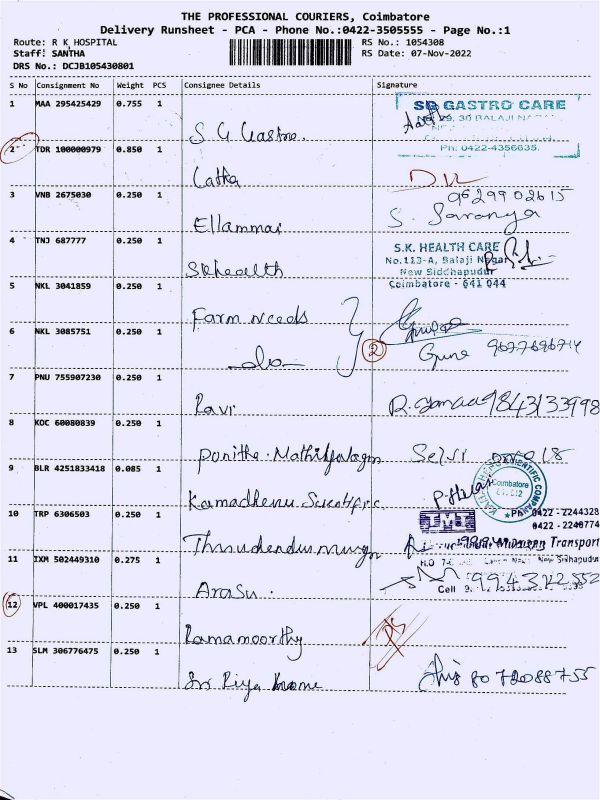 THE PROFESSIONAL COURIERS, Coimbatore
Delivery Runsheet - PCA - Phone No.:0422-3505555 - Page No.:1
Route: R K HOSPITAL RS No.: 1054308
Staff: SANTHA RS Date: 07-Nov-2022
DRS No.: DCJB105430801
S No Consignment No Weight PCS Consignee Details Signature
1 MAA 295425429 0.755 1 S G Gastro. SG GASTRO CARE
BALAJI
Ph: 0422-4356635.
2 TDR 100000979 0.850 1 Latha DL
3 VNB 2675030 0.250 1 Ellammai 9629902615
S. Saranya
4 TNJ 687777 0.250 1 Sk health S.K. HEALTH CARE
No.113-A, Balaji Nagar
New Siddhapudur
Coimbatore - 641 044
5 NKL 3041859 0.250 1 Farm needs
6 NKL 3085751 0.250 1 do 2 Guna
7 PNU 755907230 0.250 1 Ravi 9843133998
8 KOC 60080839 0.250 1 Ponitha Selvi
9 BLR 4251833418 0.085 1 Kamadhenu Scientific SCIENTIFIC COMPANY
Coimbatore
10 TRP 6306503 0.250 1 TMT Ph 0422 - 2244328
0422 - 2240774
Transport
11 IXM 502449310 0.275 1 Arasu. Siddhapudur
Cell
12 VPL 400017435 0.250 1 Ramamoorthy
13 SLM 306776475 0.250 1 Sri Priya home 8072088755